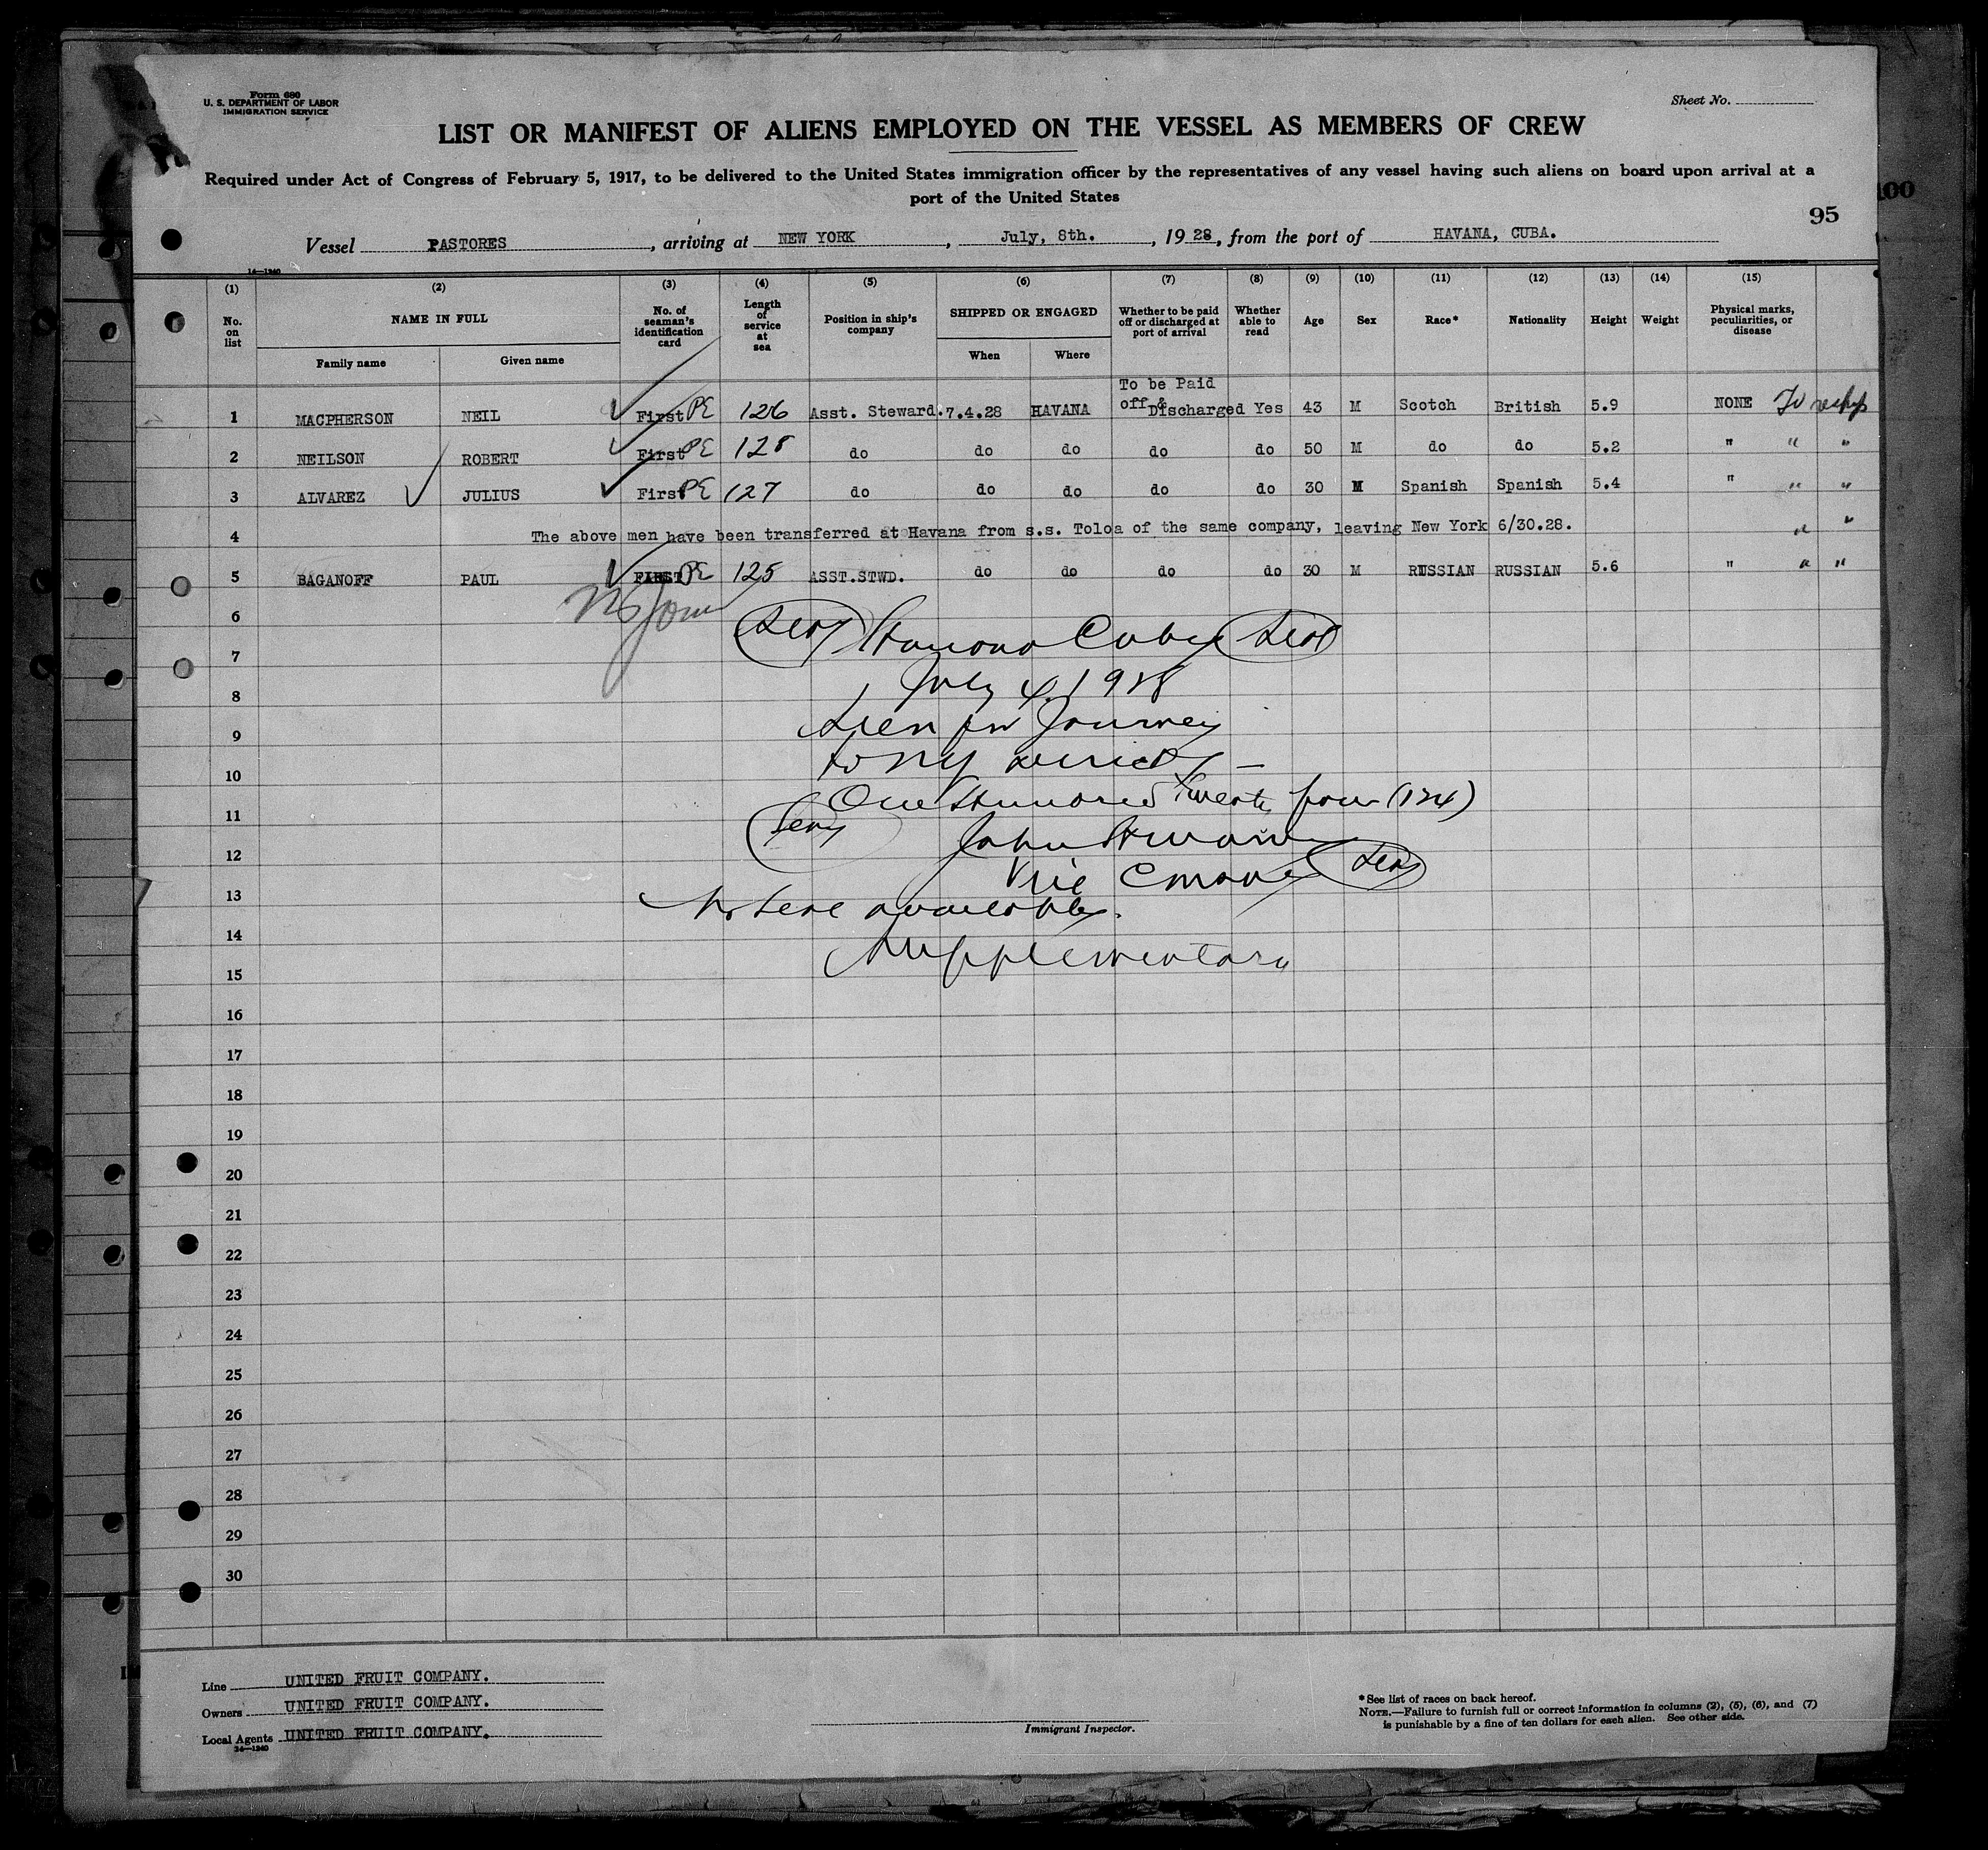 Form 680
U. S. DEPARTMENT OF LABOR
IMMIGRATION SERVICE
Sheet No.
LIST OR MANIFEST OF ALIENS EMPLOYED ON THE VESSEL AS MEMBERS OF CREW
Required under Act of Congress of February 5, 1917, to be delivered to the United States immigration officer by the representatives of any vessel having such aliens on board upon arrival at a
port of the United States
100
95
Vessel PASTORES, arriving at NEW YORK, July, 8th., 1928, from the port of HAVANA, CUBA.
14—1240
(1) (2) (3) (4) (5) (6) (7) (8) (9) (10) (11) (12) (13) (14) (15)
No. on list NAME IN FULL No. of seaman's identification card Length of service at sea Position in ship's company SHIPPED OR ENGAGED Whether to be paid off or discharged at port of arrival Whether able to read Age Sex Race* Nationality Height Weight Physical marks, peculiarities, or disease
Family name Given name When Where
To be Paid
1 MACPHERSON NEIL First PE 126 Asst. Steward. 7.4.28 HAVANA off & Discharged Yes 43 M Scotch British 5.9 NONE To reship
2 NEILSON ROBERT First PE 128 do do do do do 50 M do do 5.2 " " "
3 ALVAREZ JULIUS First PE 127 do do do do do 30 M Spanish Spanish 5.4 " " "
4 The above men have been transferred at Havana from s.s. Toloa of the same company, leaving New York 6/30.28. " "
5 BAGANOFF PAUL FIRST PE 125 ASST.STWD. do do do do 30 M RUSSIAN RUSSIAN 5.6 " " "
6
Seal Havana Cuba Seal
7
July 4, 1928
8
Seen for Journey
9
to NY
10
One Hundred Twenty four (124)
11
Seal John
12
Vice Consul Seal
13
No seal available.
14
Supplementary
15
16
17
18
19
20
21
22
23
24
25
26
27
28
29
30
Line UNITED FRUIT COMPANY.
Owners UNITED FRUIT COMPANY.
Local Agents UNITED FRUIT COMPANY.
14—1240
Immigrant Inspector.
*See list of races on back hereof.
NOTE.—Failure to furnish full or correct information in columns (2), (5), (6), and (7)
is punishable by a fine of ten dollars for each alien. See other side.